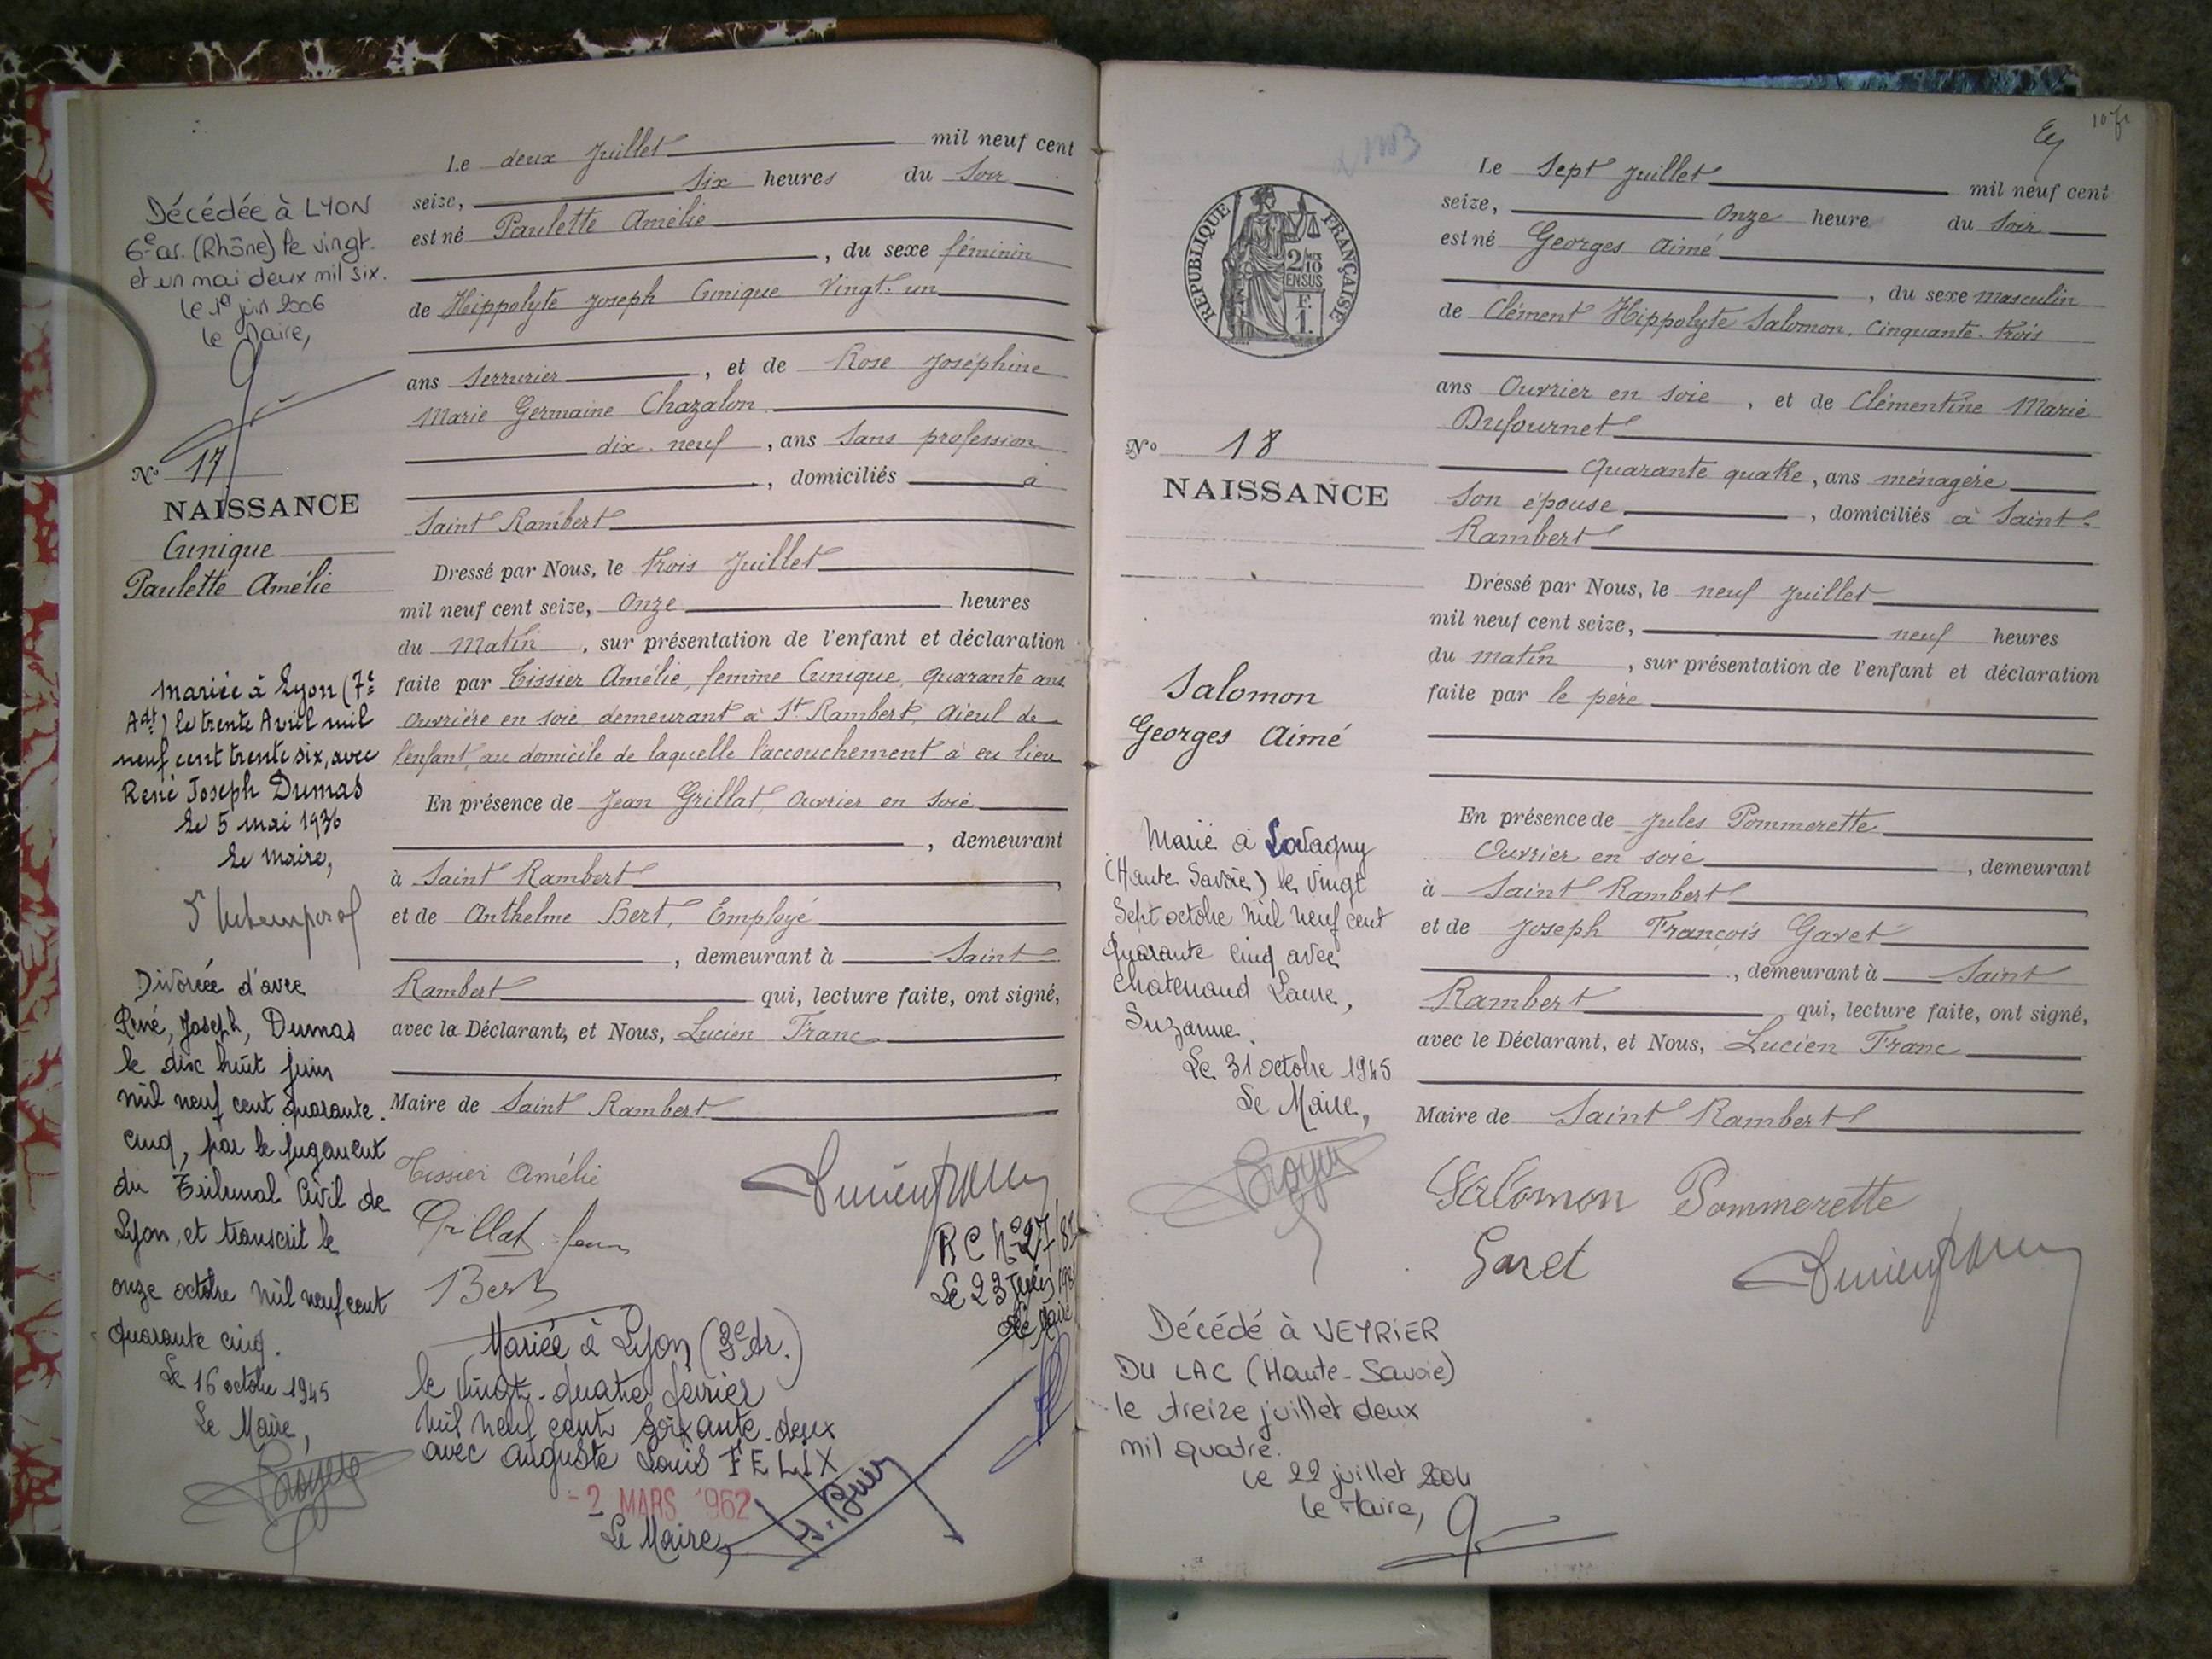 Le deux Juillet mil neuf cent
seize, six heures du Soir
est né Paulette Amélie
, du sexe féminin
de Hippolyte Joseph Cunique Vingt-un
ans Serrurier, et de Rose Joséphine
Marie Germaine Chazalon
dix-neuf, ans Sans profession
, domiciliés à
Saint Rambert
Dressé par Nous, le trois Juillet
mil neuf cent seize, Onze heures
du Matin, sur présentation de l'enfant et déclaration
faite par Tissier Amélie, femme Cunique, quarante ans
ouvrière en soie demeurant à St Rambert, aïeul de
l'enfant, au domicile de laquelle l'accouchement à eu lieu
En présence de Jean Grillat, Ouvrier en soie
, demeurant
à Saint Rambert
et de Anthelme Bert, Employé
, demeurant à Saint
Rambert qui, lecture faite, ont signé,
avec la Déclarant, et Nous, Lucien Franc
Maire de Saint Rambert
Tissier Amélie
Grillat Jean
Bert
RC No 27/8
Le 23 Juin
Le Maire
Mariée à Lyon (3e Ar.)
le vingt-quatre février
mil neuf cent soixante-deux
avec Auguste Louis FELIX
-2 MARS 1962
Le Maire,
Décédée à LYON
6e ar. (Rhône) le vingt
et un mai deux mil six.
le 1er juin 2006
le Maire,
No 17
NAISSANCE
Cunique
Paulette Amélie
Mariée à Lyon (7e
Adt) le trente Avril mil
neuf cent trente six, avec
René Joseph Dumas
Le 5 mai 1936
Le Maire,
Divorcée d'avec
René, Joseph, Dumas
le dix huit juin
mil neuf cent quarante
cinq, par le jugement
du Tribunal Civil de
Lyon, et transcrit le
onze octobre mil neuf cent
quarante cinq.
Le 16 octobre 1945
Le Maire,
10 fr
RÉPUBLIQUE FRANÇAISE
2/10
EN SUS
F.
1.
Le Sept Juillet mil neuf cent
seize, Onze heure du Soir
est né Georges Aimé
, du sexe masculin
de Clément Hippolyte Salomon, Cinquante-trois
ans Ouvrier en soie, et de Clémentine Marie
Dufournet
Quarante quatre, ans ménagère
Son épouse, domiciliés à Saint-
Rambert
Dressé par Nous, le neuf Juillet
mil neuf cent seize, neuf heures
du matin, sur présentation de l'enfant et déclaration
faite par le père
En présence de Jules Pommerette
Ouvrier en soie, demeurant
à Saint Rambert
et de Joseph François Gavet
, demeurant à Saint
Rambert qui, lecture faite, ont signé,
avec le Déclarant, et Nous, Lucien Franc
Maire de Saint Rambert
Salomon Pommerette
Gavet
No 18
NAISSANCE
Salomon
Georges Aimé
Marié à Lovagny
(Haute Savoie) le vingt
Sept octobre mil neuf cent
quarante cinq avec
Chatenoud Laure,
Suzanne.
Le 31 octobre 1945
Le Maire,
Décédé à VEYRIER
DU LAC (Haute-Savoie)
le treize juillet deux
mil quatre.
Le 22 juillet 2004
le Maire,